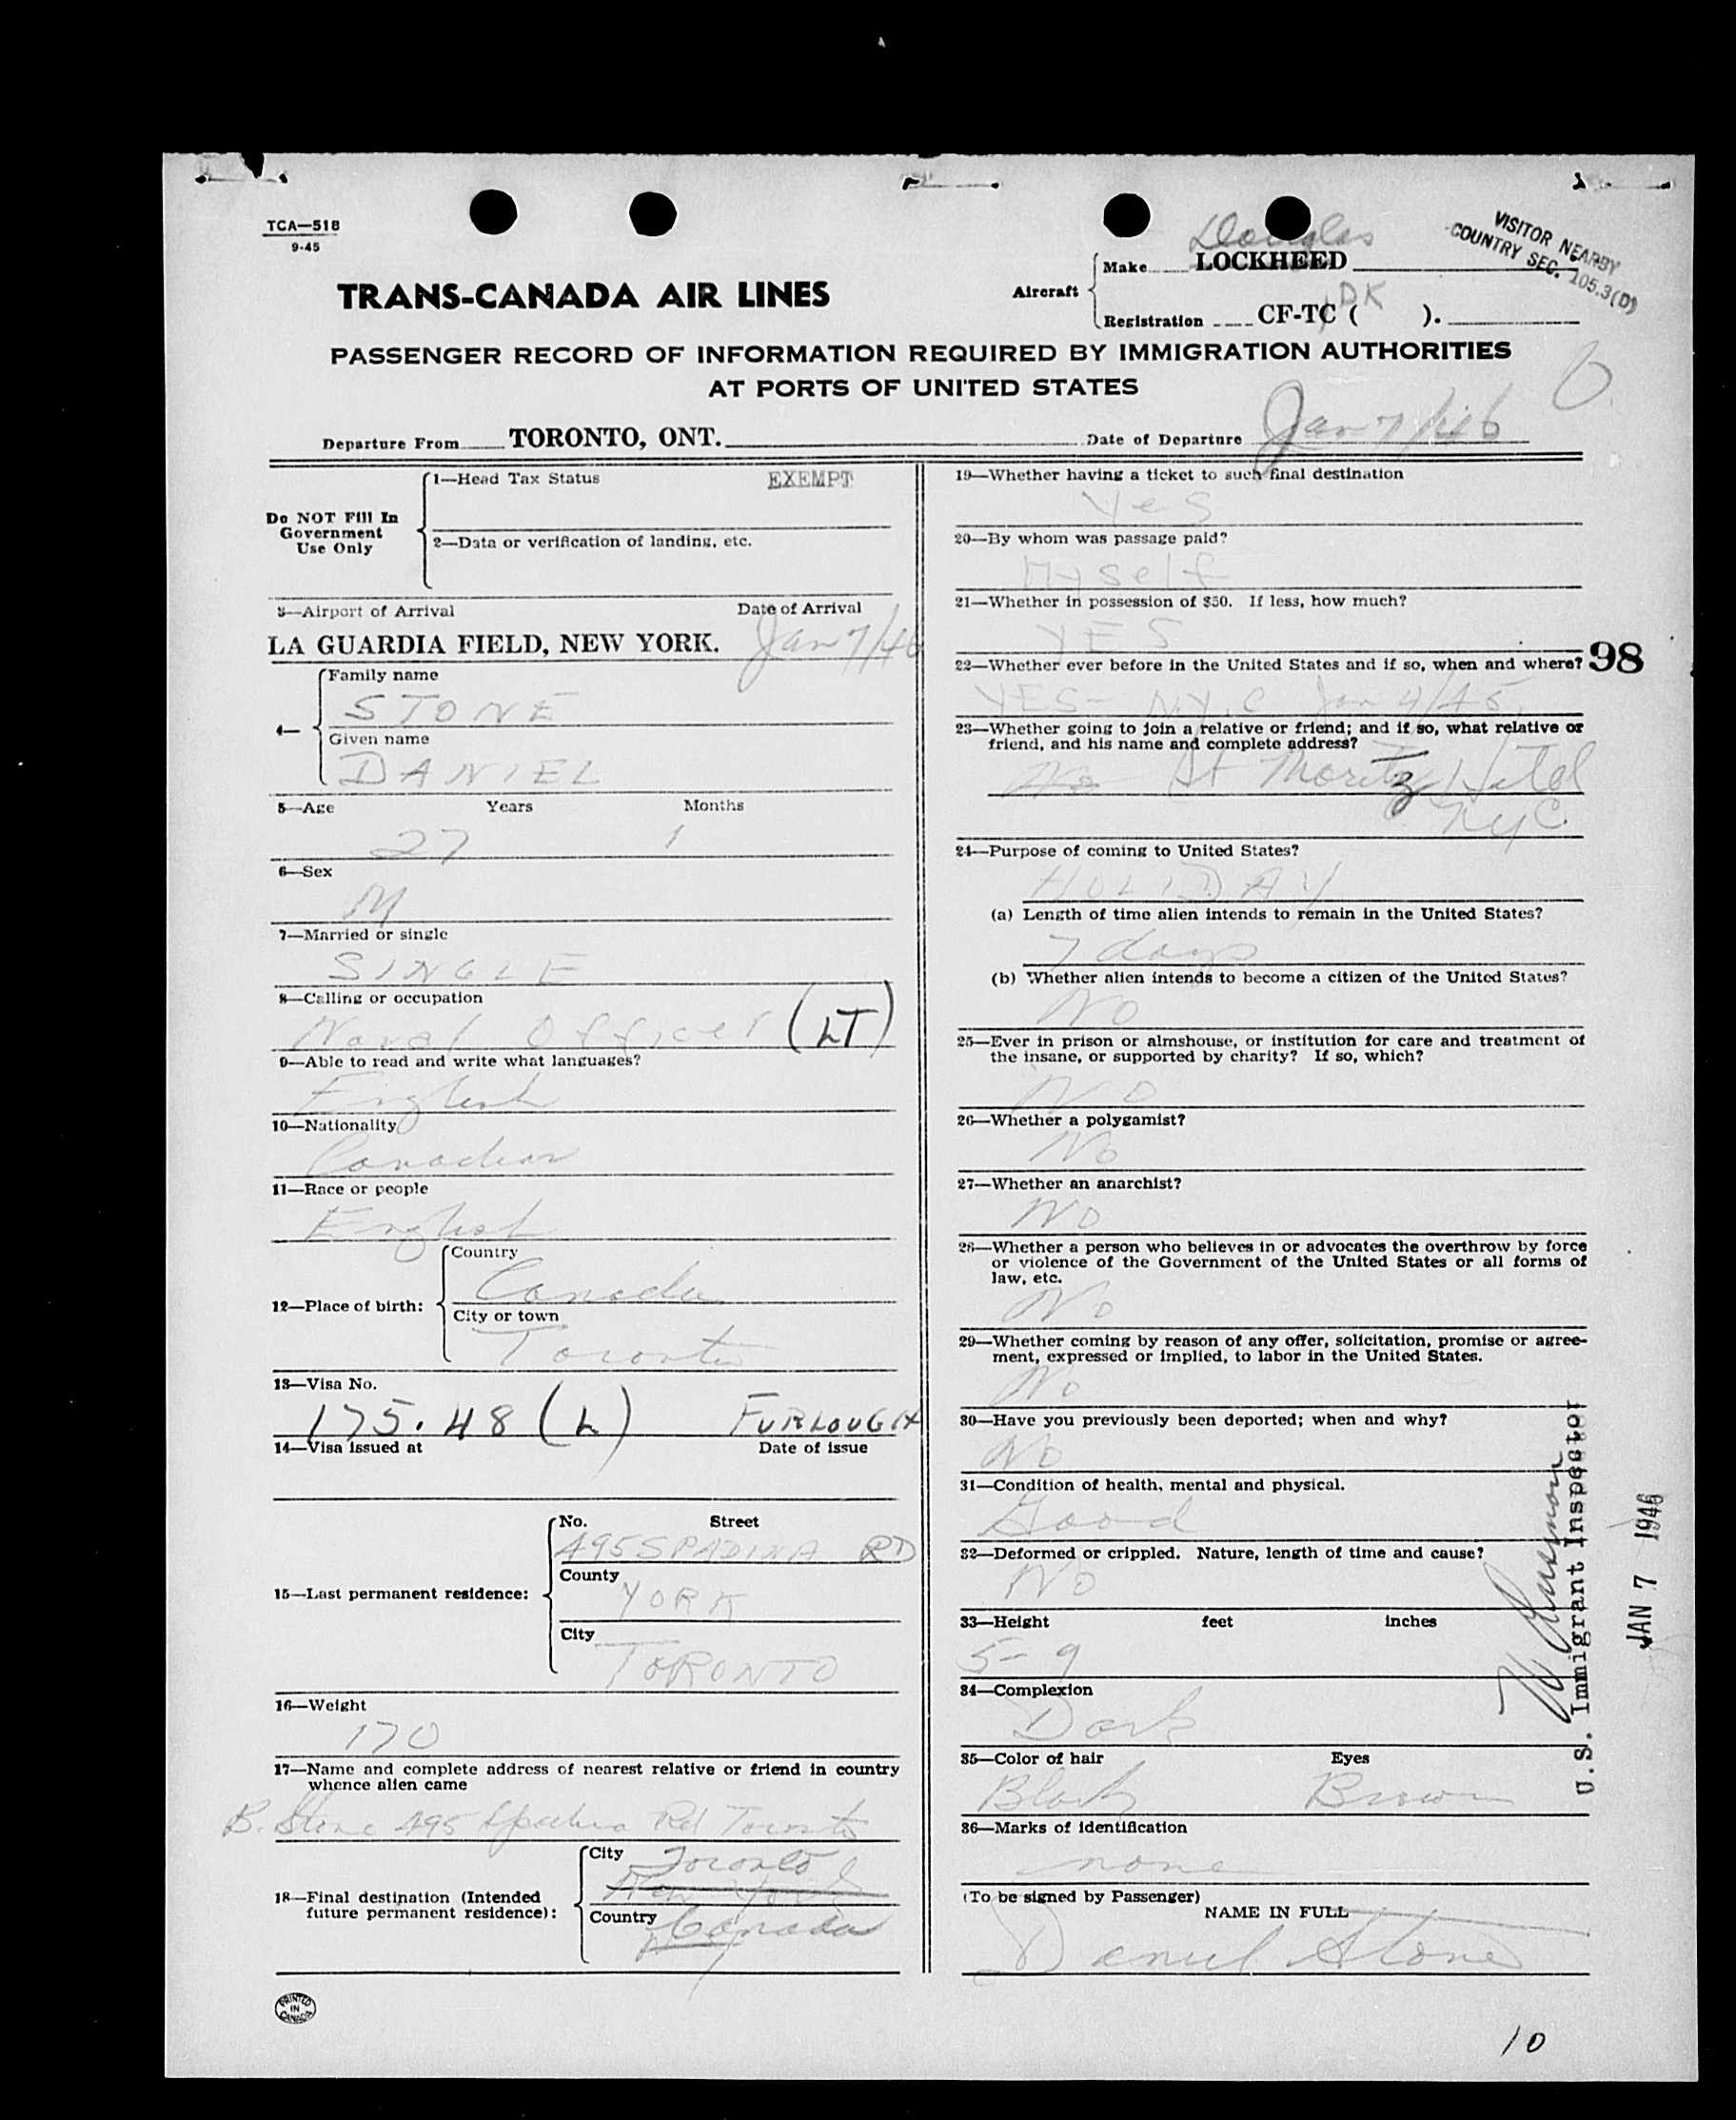 TCA—518
9-45
VISITOR NEARBY
COUNTRY SEC. 105.3(D)
TRANS-CANADA AIR LINES
Aircraft
Douglas
Make LOCKHEED
DK
Registration CF-TC ( ).
PASSENGER RECORD OF INFORMATION REQUIRED BY IMMIGRATION AUTHORITIES
AT PORTS OF UNITED STATES
Departure From TORONTO, ONT. Date of Departure Jan 7/46
Do NOT Fill In
Government
Use Only
1—Head Tax Status EXEMPT
2—Data or verification of landing, etc.
3—Airport of Arrival Date of Arrival
LA GUARDIA FIELD, NEW YORK. Jan 7/46
4—
Family name
STONE
Given name
DANIEL
5—Age Years Months
27 1
6—Sex
M
7—Married or single
SINGLE
8—Calling or occupation
Naval Officer (LT)
9—Able to read and write what languages?
English
10—Nationality
Canadian
11—Race or people
English
12—Place of birth:
Country
Canada
City or town
Toronto
13—Visa No.
175.48 (L) FURLOUGH
14—Visa issued at Date of issue
15—Last permanent residence:
No. Street
495 SPADINA RD
County
YORK
City
TORONTO
16—Weight
170
17—Name and complete address of nearest relative or friend in country
whence alien came
B. Stone 495 Spadina Rd Toronto
18—Final destination (Intended
future permanent residence):
City Toronto
New York
Country Canada
PRINTED
IN
CANADA
19—Whether having a ticket to such final destination
Yes
20—By whom was passage paid?
Myself
21—Whether in possession of $50. If less, how much?
YES
22—Whether ever before in the United States and if so, when and where?
98
YES - N.Y.C Jan 4/45
23—Whether going to join a relative or friend; and if so, what relative or
friend, and his name and complete address?
No St Moritz Hotel
NYC
24—Purpose of coming to United States?
HOLIDAY
(a) Length of time alien intends to remain in the United States?
7 days
(b) Whether alien intends to become a citizen of the United States?
NO
25—Ever in prison or almshouse, or institution for care and treatment of
the insane, or supported by charity? If so, which?
NO
26—Whether a polygamist?
No
27—Whether an anarchist?
NO
28—Whether a person who believes in or advocates the overthrow by force
or violence of the Government of the United States or all forms of
law, etc.
No
29—Whether coming by reason of any offer, solicitation, promise or agree-
ment, expressed or implied, to labor in the United States.
No
30—Have you previously been deported; when and why?
No
31—Condition of health, mental and physical.
Good
32—Deformed or crippled. Nature, length of time and cause?
No
33—Height feet inches
5 - 9
34—Complexion
Dark
35—Color of hair Eyes
Black Brown
36—Marks of identification
none
(To be signed by Passenger)
NAME IN FULL
Daniel Stone
U.S. Immigrant Inspector
JAN 7 1946
10